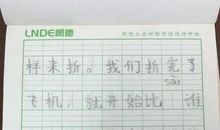 LNDE朗德
样来折。我们折完了
sài
飞机，就开始比 谁